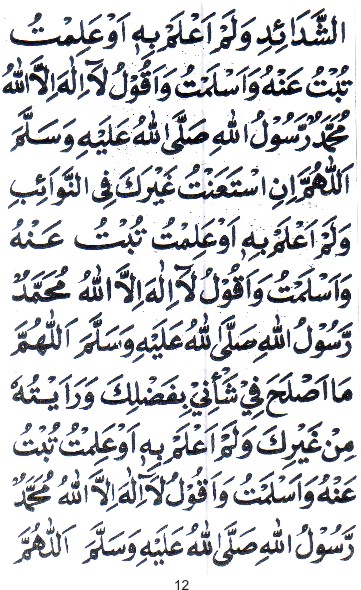 الشَّدَائِدِ وَلَمْ اَعْلَمْ بِهٖ اَوْ عَلِمْتُ
تُبْتُ عَنْهُ وَاَسْلَمْتُ وَاَقُوْلُ لَآ اِلٰهَ اِلَّا اللهُ
مُحَمَّدٌ رَّسُوْلُ اللهِ صَلَّى اللهُ عَلَيْهِ وَسَلَّمَ
اَللّٰهُمَّ اِنِ اسْتَعَنْتُ غَيْرَكَ فِي النَّوَائِبِ
وَلَمْ اَعْلَمْ بِهٖ اَوْ عَلِمْتُ تُبْتُ عَنْهُ
وَاَسْلَمْتُ وَاَقُوْلُ لَآ اِلٰهَ اِلَّا اللهُ مُحَمَّدٌ
رَّسُوْلُ اللهِ صَلَّى اللهُ عَلَيْهِ وَسَلَّمَ اَللّٰهُمَّ
مَا اَصْلَحَ فِيْ شَأْنِيْ بِفَضْلِكَ وَرَاَيْتُهٗ
مِنْ غَيْرِكَ وَلَمْ اَعْلَمْ بِهٖ اَوْ عَلِمْتُ تُبْتُ
عَنْهُ وَاَسْلَمْتُ وَاَقُوْلُ لَآ اِلٰهَ اِلَّا اللهُ مُحَمَّدٌ
رَّسُوْلُ اللهِ صَلَّى اللهُ عَلَيْهِ وَسَلَّمَ اَللّٰهُمَّ
12